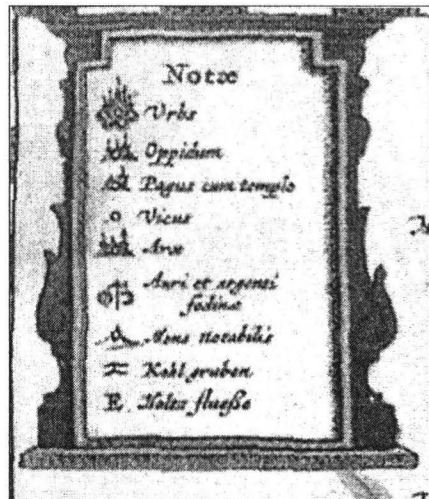 Notæ
Urbs
Oppidum
Pagus cum templo
Vicus
Arx
Auri et argenti
fodinæ
Mons notabilis
Kohl gruben
E